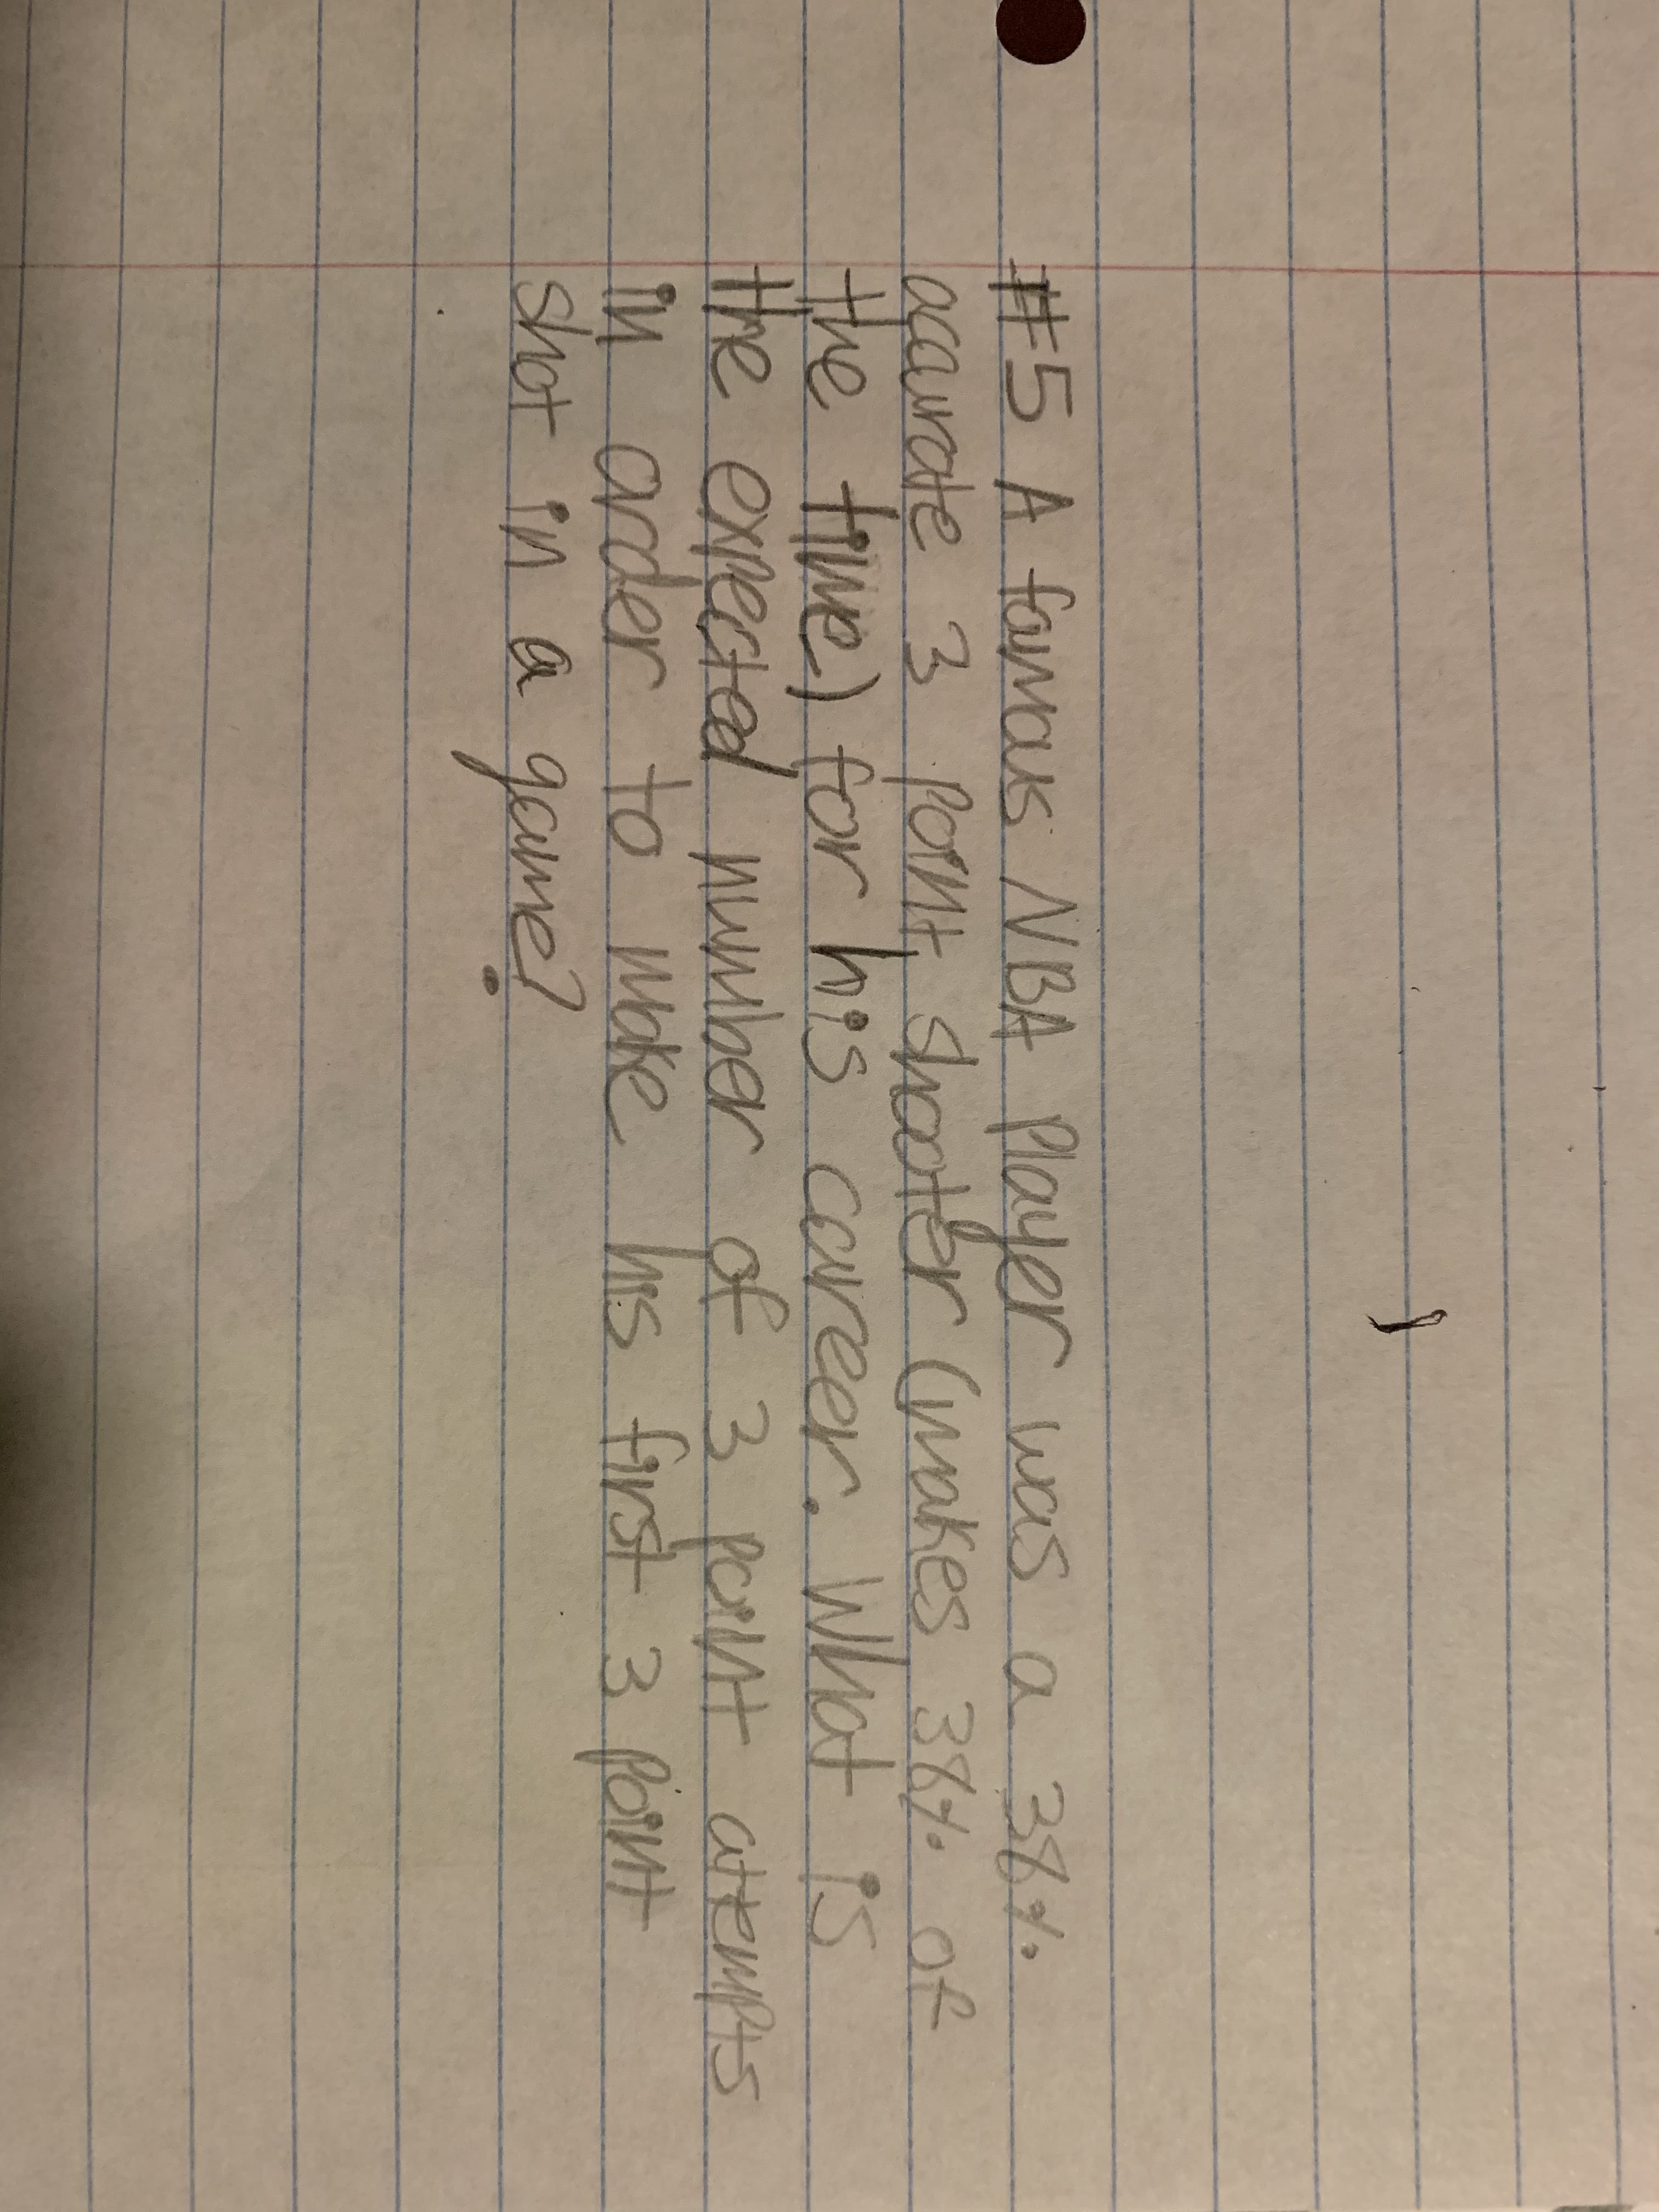 #5 A famous NBA player was a 38%
accurate 3 point shooter (makes 38% of
the time) for his career. What is
the expected number of 3 point attempts
in order to make his first 3 point
shot in a game?